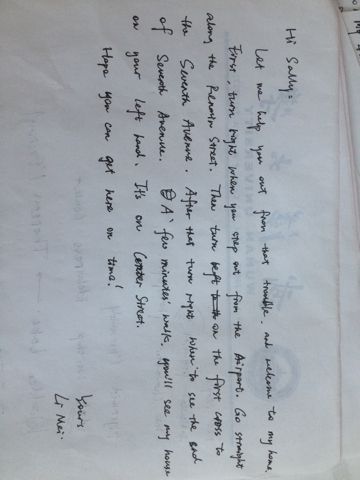 Hi Sally:
Let me help you out from that trouble. and welcome to my home.
First, turn right when you step out from the Airport. Go straight
along the Renmin Street. Then turn left on the first cross to
the Seventh Avenue. After that turn right when to see the end
of Seventh Avenue. A few minutes' walk. you'll see my house
on your left hand. It's on Center Street.
Hope you can get here on time!
Yours
Li Mei.